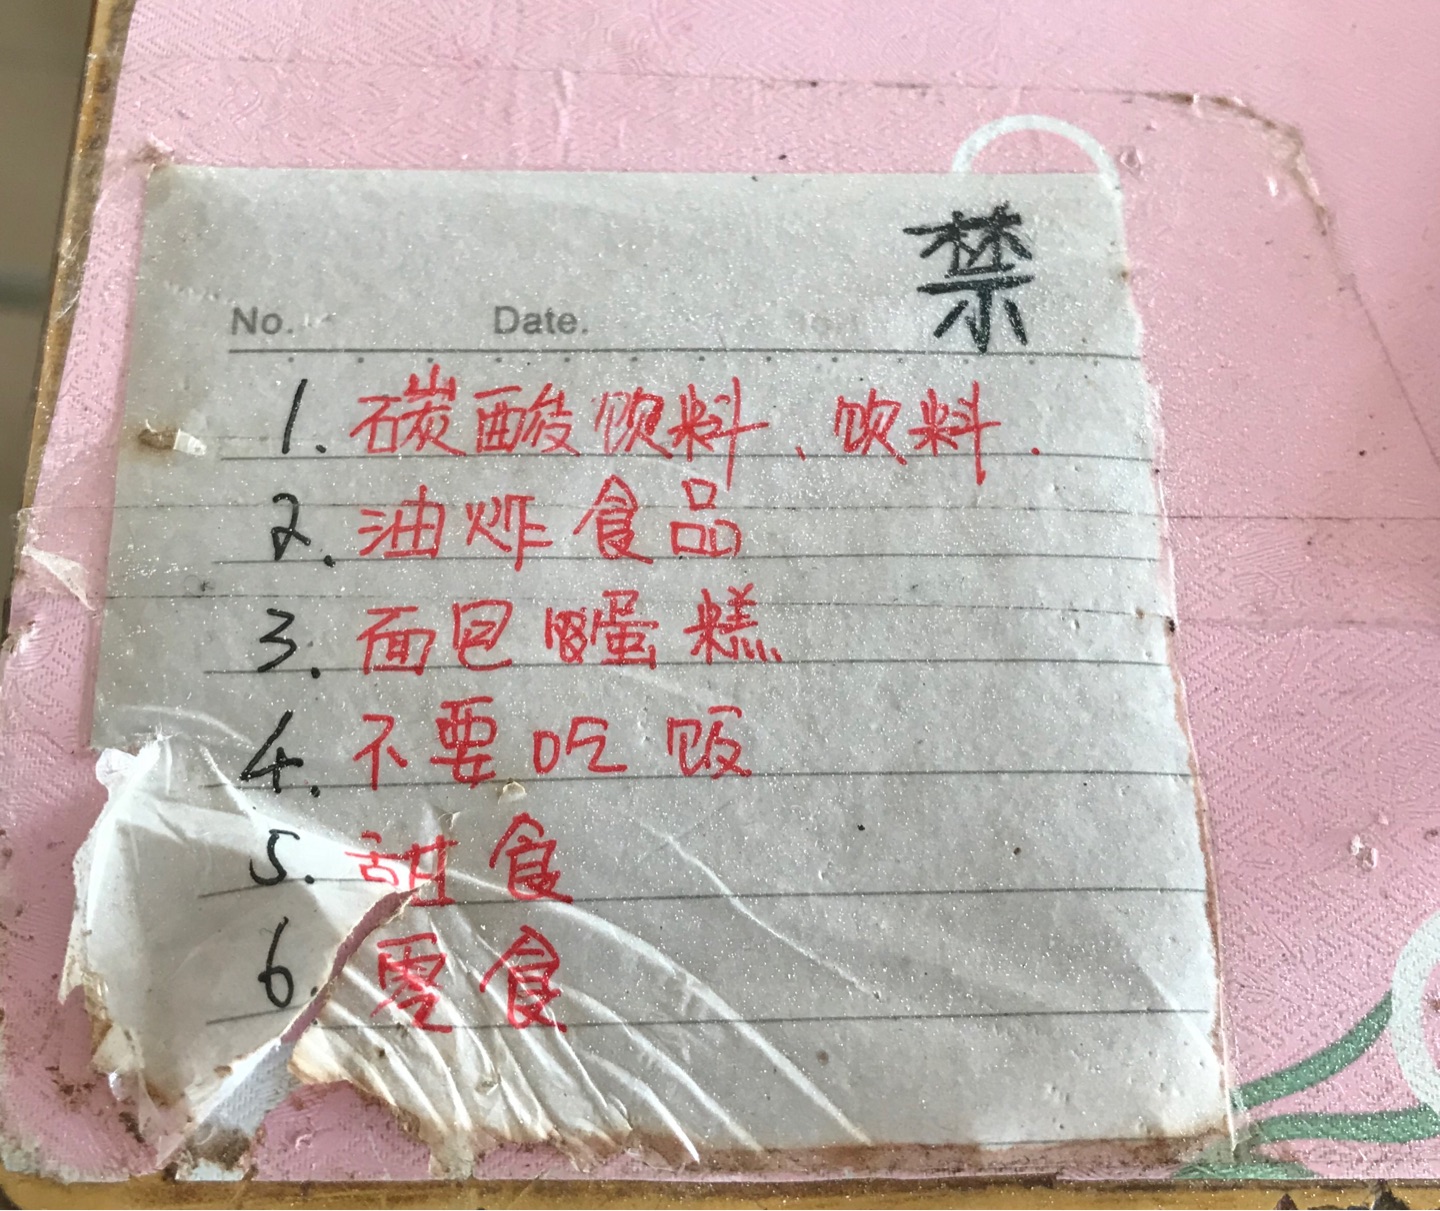 禁
No. Date.
1. 碳酸饮料、饮料.
2. 油炸食品
3. 面包蛋糕
4. 不要吃饭
5. 甜食
6. 零食